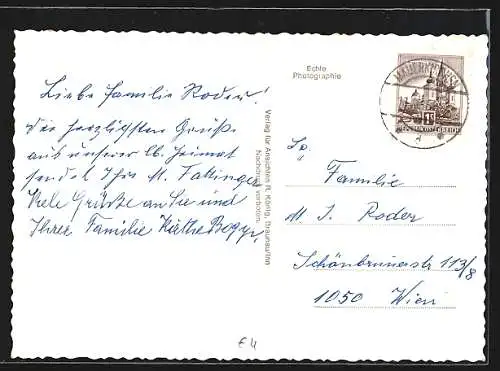 Echte
Photographie
Liebe Familie Roder!
die herzligsten Grüße
aus unserer lb. Heimat
sendet Ihre M.
Viele Grüße an Sie und
Ihrer Familie
Verlag für Ansichten R. König, Braunau/Inn
Nachdruck verboten.
Familie
M. J. Roder
Schönbrunnerstr 113/8
1050 Wien
€4